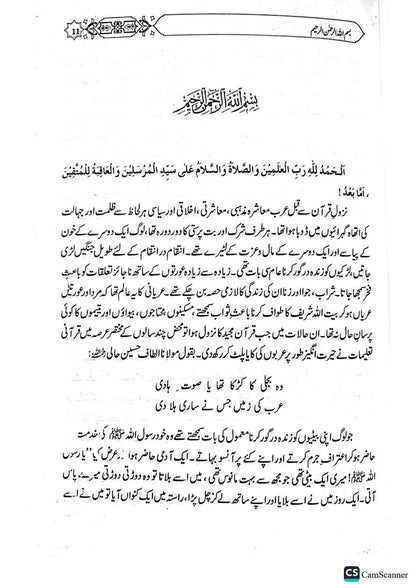 بسم اللہ الرحمٰن الرحیم
11
بِسْمِ اللّٰهِ الرَّحْمٰنِ الرَّحِيْمِ
اَلْحَمْدُ لِلّٰهِ رَبِّ الْعٰلَمِيْنَ وَالصَّلاَةُ وَالسَّلاَمُ عَلٰى سَيِّدِ الْمُرْسَلِيْنَ وَالْعَاقِبَةُ لِلْمُتَّقِيْنَ
، اَمَّا بَعْدُ !
نزولِ قرآن سے قبل عرب معاشرہ مذہبی، معاشرتی، اخلاقی اور سیاسی ہر لحاظ سے ظلمت اور جہالت
کی اتھاہ گہرائیوں میں ڈوبا ہوا تھا۔ ہر طرف شرک اور بت پرستی کا دور دورہ تھا، لوگ ایک دوسرے کے خون
کے پیاسے اور ایک دوسرے کے مال و عزت کے لٹیرے تھے۔ انتقام در انتقام کے لئے طویل جنگیں لڑی
جاتیں، لڑکیوں کو زندہ درگور کرنا عام سی بات تھی۔ زیادہ سے زیادہ عورتوں کے ساتھ ناجائز تعلقات کو باعث
فخر سمجھا جاتا۔ شراب، جوا اور زنا ان کی زندگی کا لازمی حصہ بن چکے تھے۔ عریانی کا یہ عالم تھا کہ مرد اور عورتیں
عریاں ہو کر بیت اللہ شریف کا طواف کرنا باعث ثواب سمجھتے، مسکینوں، محتاجوں، بیواؤں اور یتیموں کا کوئی
پرسان حال نہ تھا۔ ان حالات میں جب قرآن مجید کا نزول ہوا تو محض چند سالوں کے مختصر عرصہ میں قرآنی
تعلیمات نے حیرت انگیز طور پر عربوں کی کایا پلٹ کر رکھ دی۔ بقول مولانا الطاف حسین حالی
وہ بجلی کا کڑکا تھا یا صوت ہادی
عرب کی زمیں جس نے ساری ہلا دی
جو لوگ اپنی بیٹیوں کو زندہ درگور کرنا معمول کی بات سمجھتے تھے وہ خود رسول اللہ ﷺ کی خدمت
حاضر ہو کر اعتراف جرم کرتے اور اپنے کئے پر آنسو بہاتے۔ ایک آدمی حاضر ہوا، عرض کیا ”یا رسول
اللہ ﷺ! میری ایک بیٹی تھی جو مجھ سے بہت مانوس تھی، میں اسے بلاتا تو وہ دوڑتی دوڑتی میرے پاس
آتی۔ ایک روز میں نے اسے بلایا اور اپنے ساتھ لے کر چل پڑا، راستہ میں ایک کنواں آیا تو میں نے اسے
CS CamScanner